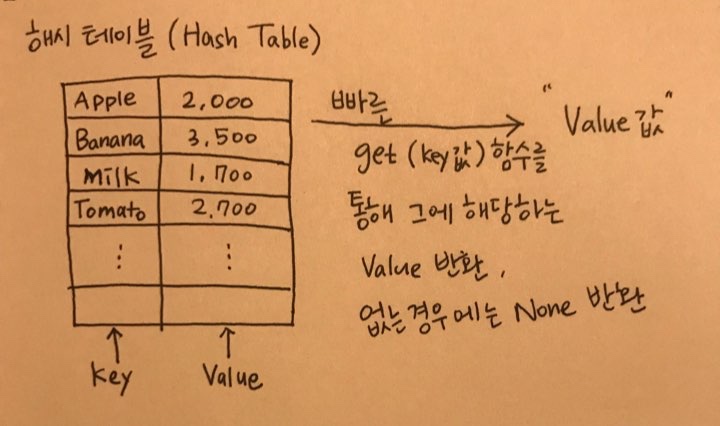 해시 테이블 (Hash Table)
Apple 2,000
Banana 3,500
Milk 1,700
Tomato 2,700
⋮ ⋮
Key Value
빠른
"Value 값"
get (key값) 함수를
통해 그에 해당하는
Value 반환,
없는경우에는 None 반환